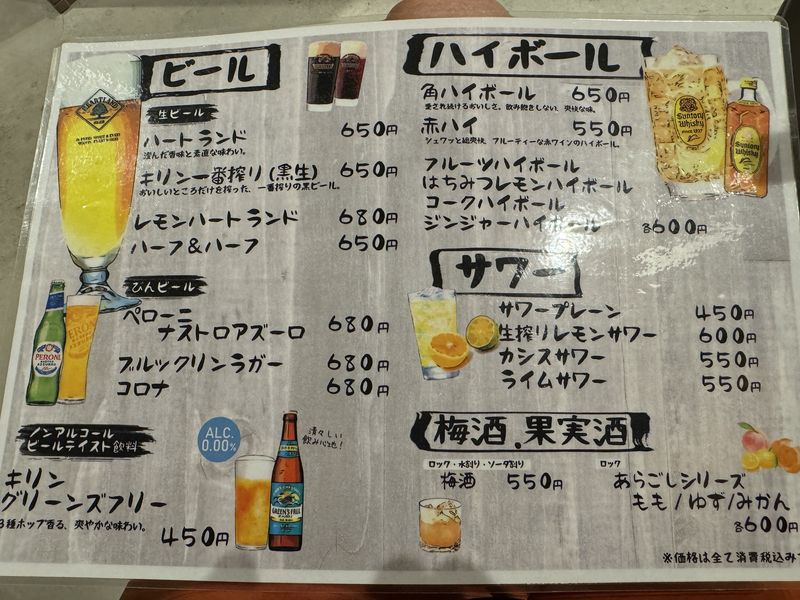 ビール
生ビール
ハートランド 650円
澄んだ香味と素直な味わい。
キリン一番搾り(黒生) 650円
おいしいところだけを搾った、一番搾りの黒ビール。
レモンハートランド 680円
ハーフ&ハーフ 650円
びんビール
ペローニ
ナストロアズーロ 680円
ブルックリンラガー 680円
コロナ 680円
ノンアルコール
ビールテイスト飲料
ALC.
0.00%
清々しい
飲み心地!
キリン
グリーンズフリー
3種ホップ香る、爽やかな味わい。
450円
HEARTLAND
BEER
PERONI
GREEN'S FREE
ハイボール
角ハイボール 650円
愛され続けるおいしさ。飲み飽きしない、爽快な味。
赤ハイ 550円
シュワッと超爽快、フルーティーな赤ワインのハイボール。
フルーツハイボール
はちみつレモンハイボール
コークハイボール
ジンジャーハイボール 各600円
Suntory
Whisky
SINCE 1937
Suntory
Whisky
サワー
サワープレーン 450円
生搾りレモンサワー 600円
カシスサワー 550円
ライムサワー 550円
梅酒.果実酒
ロック・水割り・ソーダ割り
梅酒 550円
ロック
あらごしシリーズ
もも/ゆず/みかん
各600円
※価格は全て消費税込み